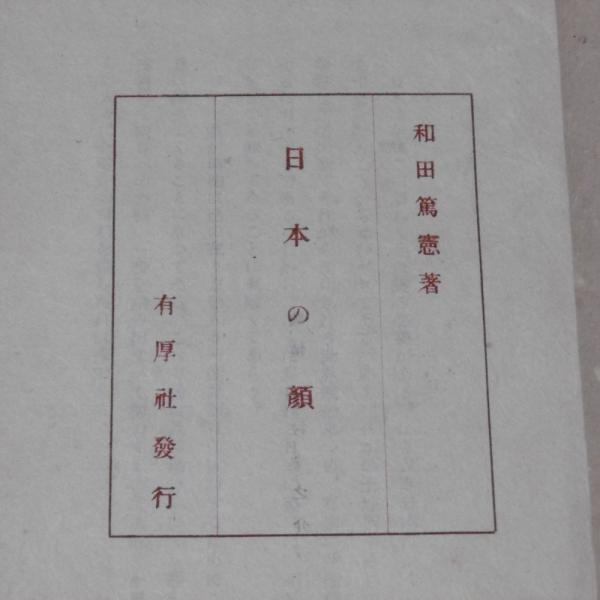 和田篤憲著
日本の顔
有厚社發行